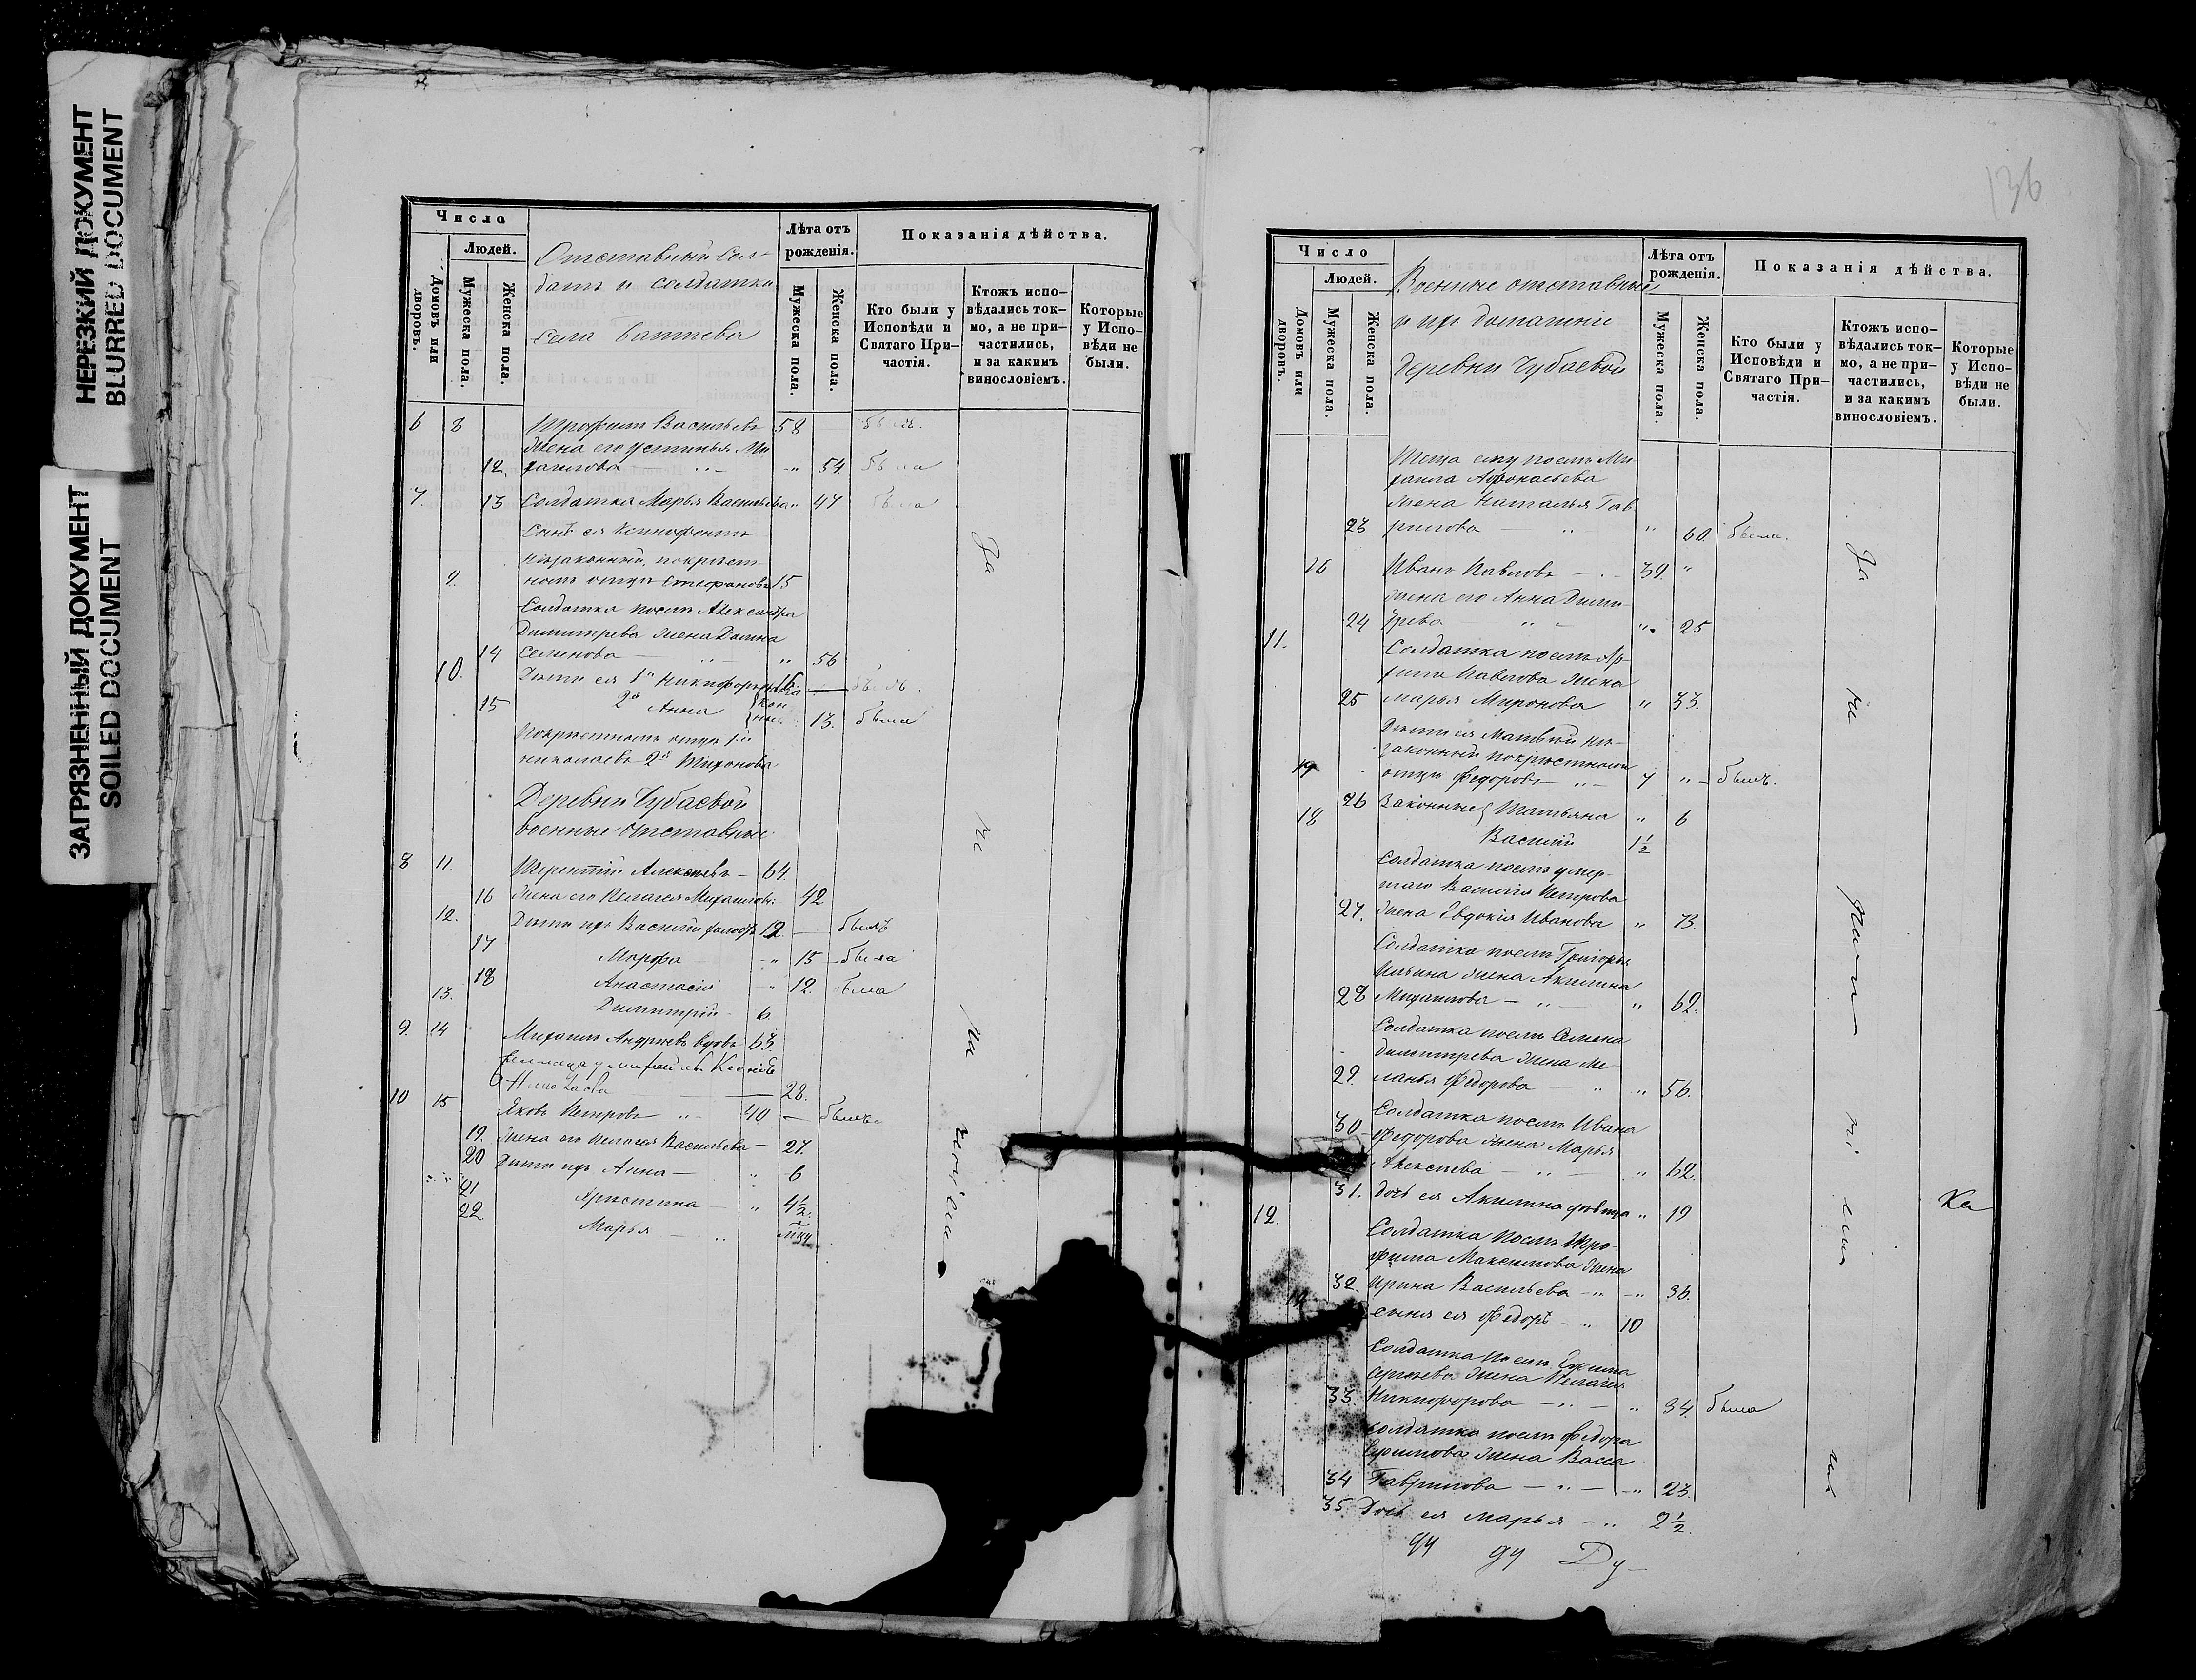 НЕРЕЗКИЙ ДОКУМЕНТ
BLURRED DOCUMENT
ЗАГРЯЗНЕННЫЙ ДОКУМЕНТ
SOILED DOCUMENT
Число
Людей.
Домовъ или дворовъ.
Мужеска пола.
Женска пола.
Отставный Сол-
датъ и солдатки
села
Лѣта отъ рожденія.
Мужеска пола.
Женска пола.
Показанія дѣйства.
Кто были у Исповѣди и Святаго При-частія.
Ктожъ испо-вѣдались ток-мо, а не при-частились, и за какимъ винословіемъ.
Которые у Испо-вѣди не были.
6 8 Трофимъ Васильевъ 58 былъ.
жена его Устинья Ми
12. хаилова " 54 была
7. 13 Солдатка Марья Васильева " 47 была
Сынъ ея Ксенофонтъ
незаконный, по крест
9. номъ отцѣ Стефановъ 15
Солдатка послѣ Александра
Димитрева жена Домна
14 Семенова " 56
10. Дѣти ея 1й Никифоръ 16 былъ.
15 2я Анна 13. была
По крестномъ отцѣ 1й
Николаевъ 2я Тихонова
Деревни Чубаевой
военные отставные
8 11. Терентій Алексѣевъ 64.
16 жена его Пелагея Михаилова 42
12. Дѣти ихъ Василій 19 былъ
17 Марфа " 15 была
18 Анастасія " 12 была
13. Димитрій 6
9. 14 Михаилъ Андреевъ вдовъ 63.
28.
10 15 Яковъ Петровъ 40 былъ
19. жена его Пелагея Васильева 27.
20 Дѣти ихъ Анна " 6
21 Христина " 4½
22 Марья
За
136
Число
Людей.
Домовъ или дворовъ.
Мужеска пола.
Женска пола.
Военные отставные
и ихъ домашніе
деревни Чубаевой
Лѣта отъ рожденія.
Мужеска пола.
Женска пола.
Показанія дѣйства.
Кто были у Исповѣди и Святаго При-частія.
Ктожъ испо-вѣдались ток-мо, а не при-частились, и за какимъ винословіемъ.
Которые у Испо-вѣди не были.
Теща ему послѣ Ми-
хаила Афонасьева
жена Наталья Гав
23 рилова " 60 была.
16 Иванъ Павловъ 39. "
жена его Анна Дими-
24 трева " 25
11. Солдатка послѣ
Павлова жена
25 Марья Миронова " 33.
Дѣти ея Матвѣй не-
законный по крестномъ
17 отцѣ Федоровъ 7 " былъ.
26 Законные Татьяна " 6
18 Василій 1½
Солдатка послѣ умер-
шаго Василія Петрова
27. жена Евдокія Иванова " 73.
Солдатка послѣ Григорья
Ильина жена Акилина
28 Михаилова " 62.
Солдатка послѣ Семена
Димитрева жена Ме-
29. ланья Федорова " 56.
Солдатка послѣ Ивана
30 Федорова жена Марья
Алексѣева " 62.
31. дочь ея Акилина дѣвица " 19
12. Солдатка послѣ Тро-
фима Максимова жена
32. Ирина Васильева " 36.
сынъ ея Федоръ 10
Солдатка послѣ
Сергѣева жена Пелагея
33. Никифорова " 34. была
Солдатка послѣ Федора
жена Васса
34 Гаврилова " 23.
35 Дочь ея Марья 2½
За